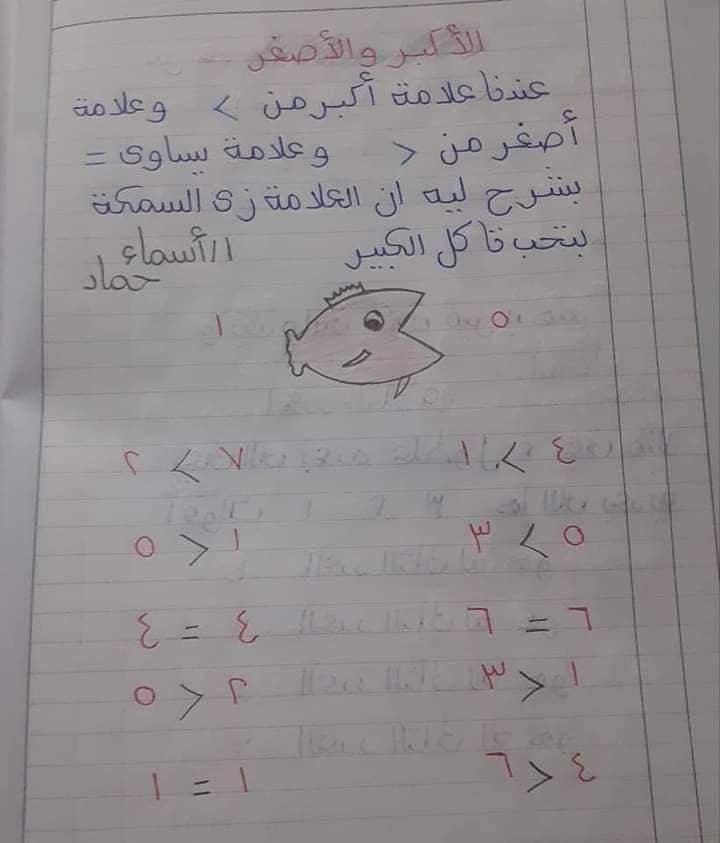 الأكبر والأصغر
عندنا علامة أكبر من > وعلامة
أصغر من < وعلامة يساوى =
بشرح ليه ان العلامة زى السمكة
بتحب تاكل الكبير
ا/أسماء حماد
٥ ١
٤ > ١ ٧ > ٢
٥ > ٣ ١ < ٥
٦ = ٦ ٤ = ٤
١ < ٣ ٢ < ٥
٤ < ٦ ١ = ١